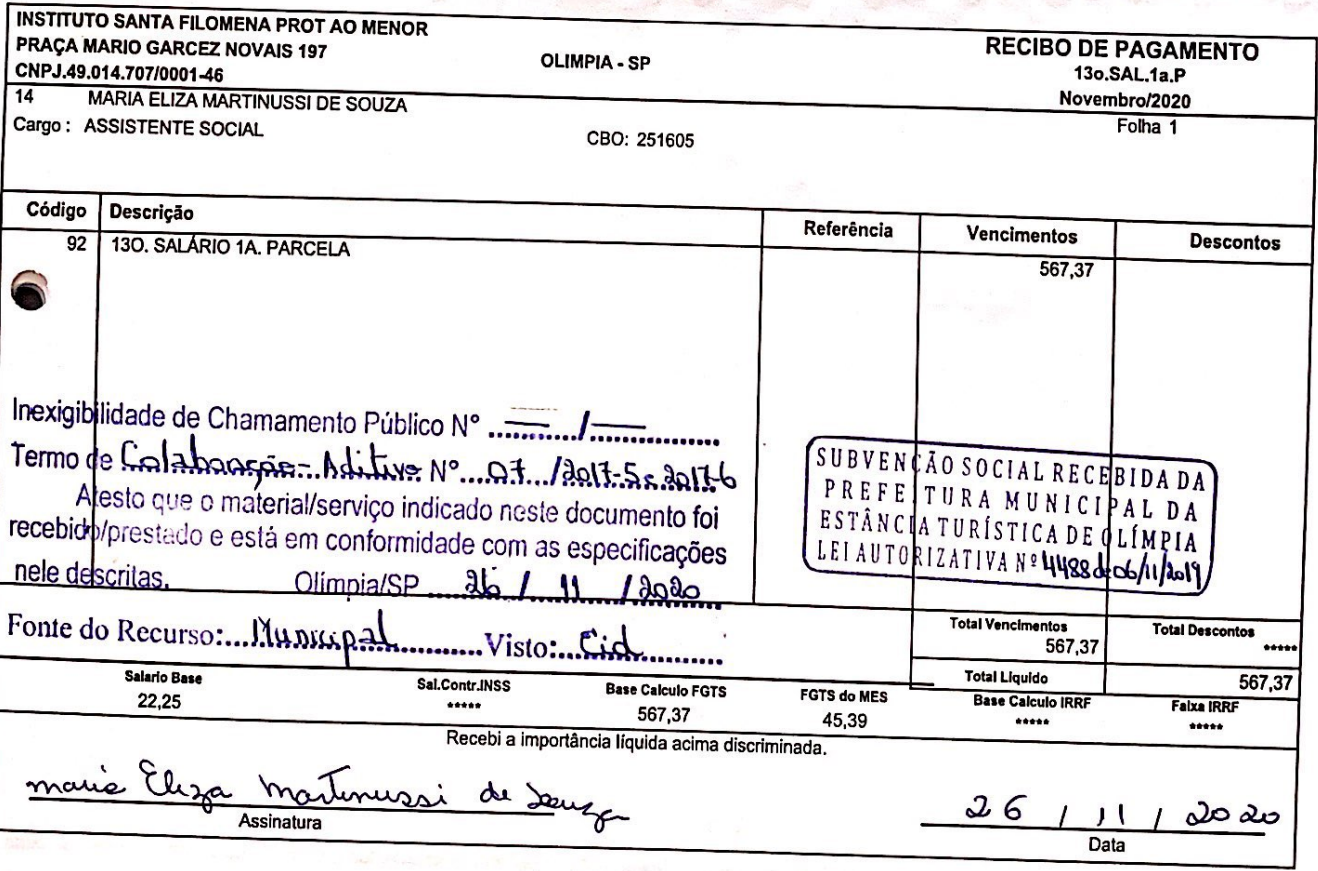 INSTITUTO SANTA FILOMENA PROT AO MENOR
PRAÇA MARIO GARCEZ NOVAIS 197
OLIMPIA - SP
CNPJ.49.014.707/0001-46
RECIBO DE PAGAMENTO
13o.SAL.1a.P
Novembro/2020
Folha 1
14 MARIA ELIZA MARTINUSSI DE SOUZA
Cargo : ASSISTENTE SOCIAL
CBO: 251605
Código Descrição Referência Vencimentos Descontos
92 13O. SALÁRIO 1A. PARCELA 567,37
Inexigibilidade de Chamamento Público Nº ...—.../...—...
Termo de Colaboração - Aditivo Nº ....07.../2017-5 e 2017-6
Atesto que o material/serviço indicado neste documento foi
recebido/prestado e está em conformidade com as especificações
nele descritas. Olímpia/SP 26 / 11 / 2020
Fonte do Recurso:...Municipal...........Visto:...Cid............
SUBVENÇÃO SOCIAL RECEBIDA DA
PREFEITURA MUNICIPAL DA
ESTÂNCIA TURÍSTICA DE OLÍMPIA
LEI AUTORIZATIVA Nº 4488 de 06/11/2019
Total Vencimentos Total Descontos
567,37 *****
Total Liquido 567,37
Salario Base Sal.Contr.INSS Base Calculo FGTS FGTS do MES Base Calculo IRRF Faixa IRRF
22,25 ***** 567,37 45,39 ***** *****
Recebi a importância líquida acima discriminada.
maria Eliza Martinussi de Souza
Assinatura
26 / 11 / 2020
Data